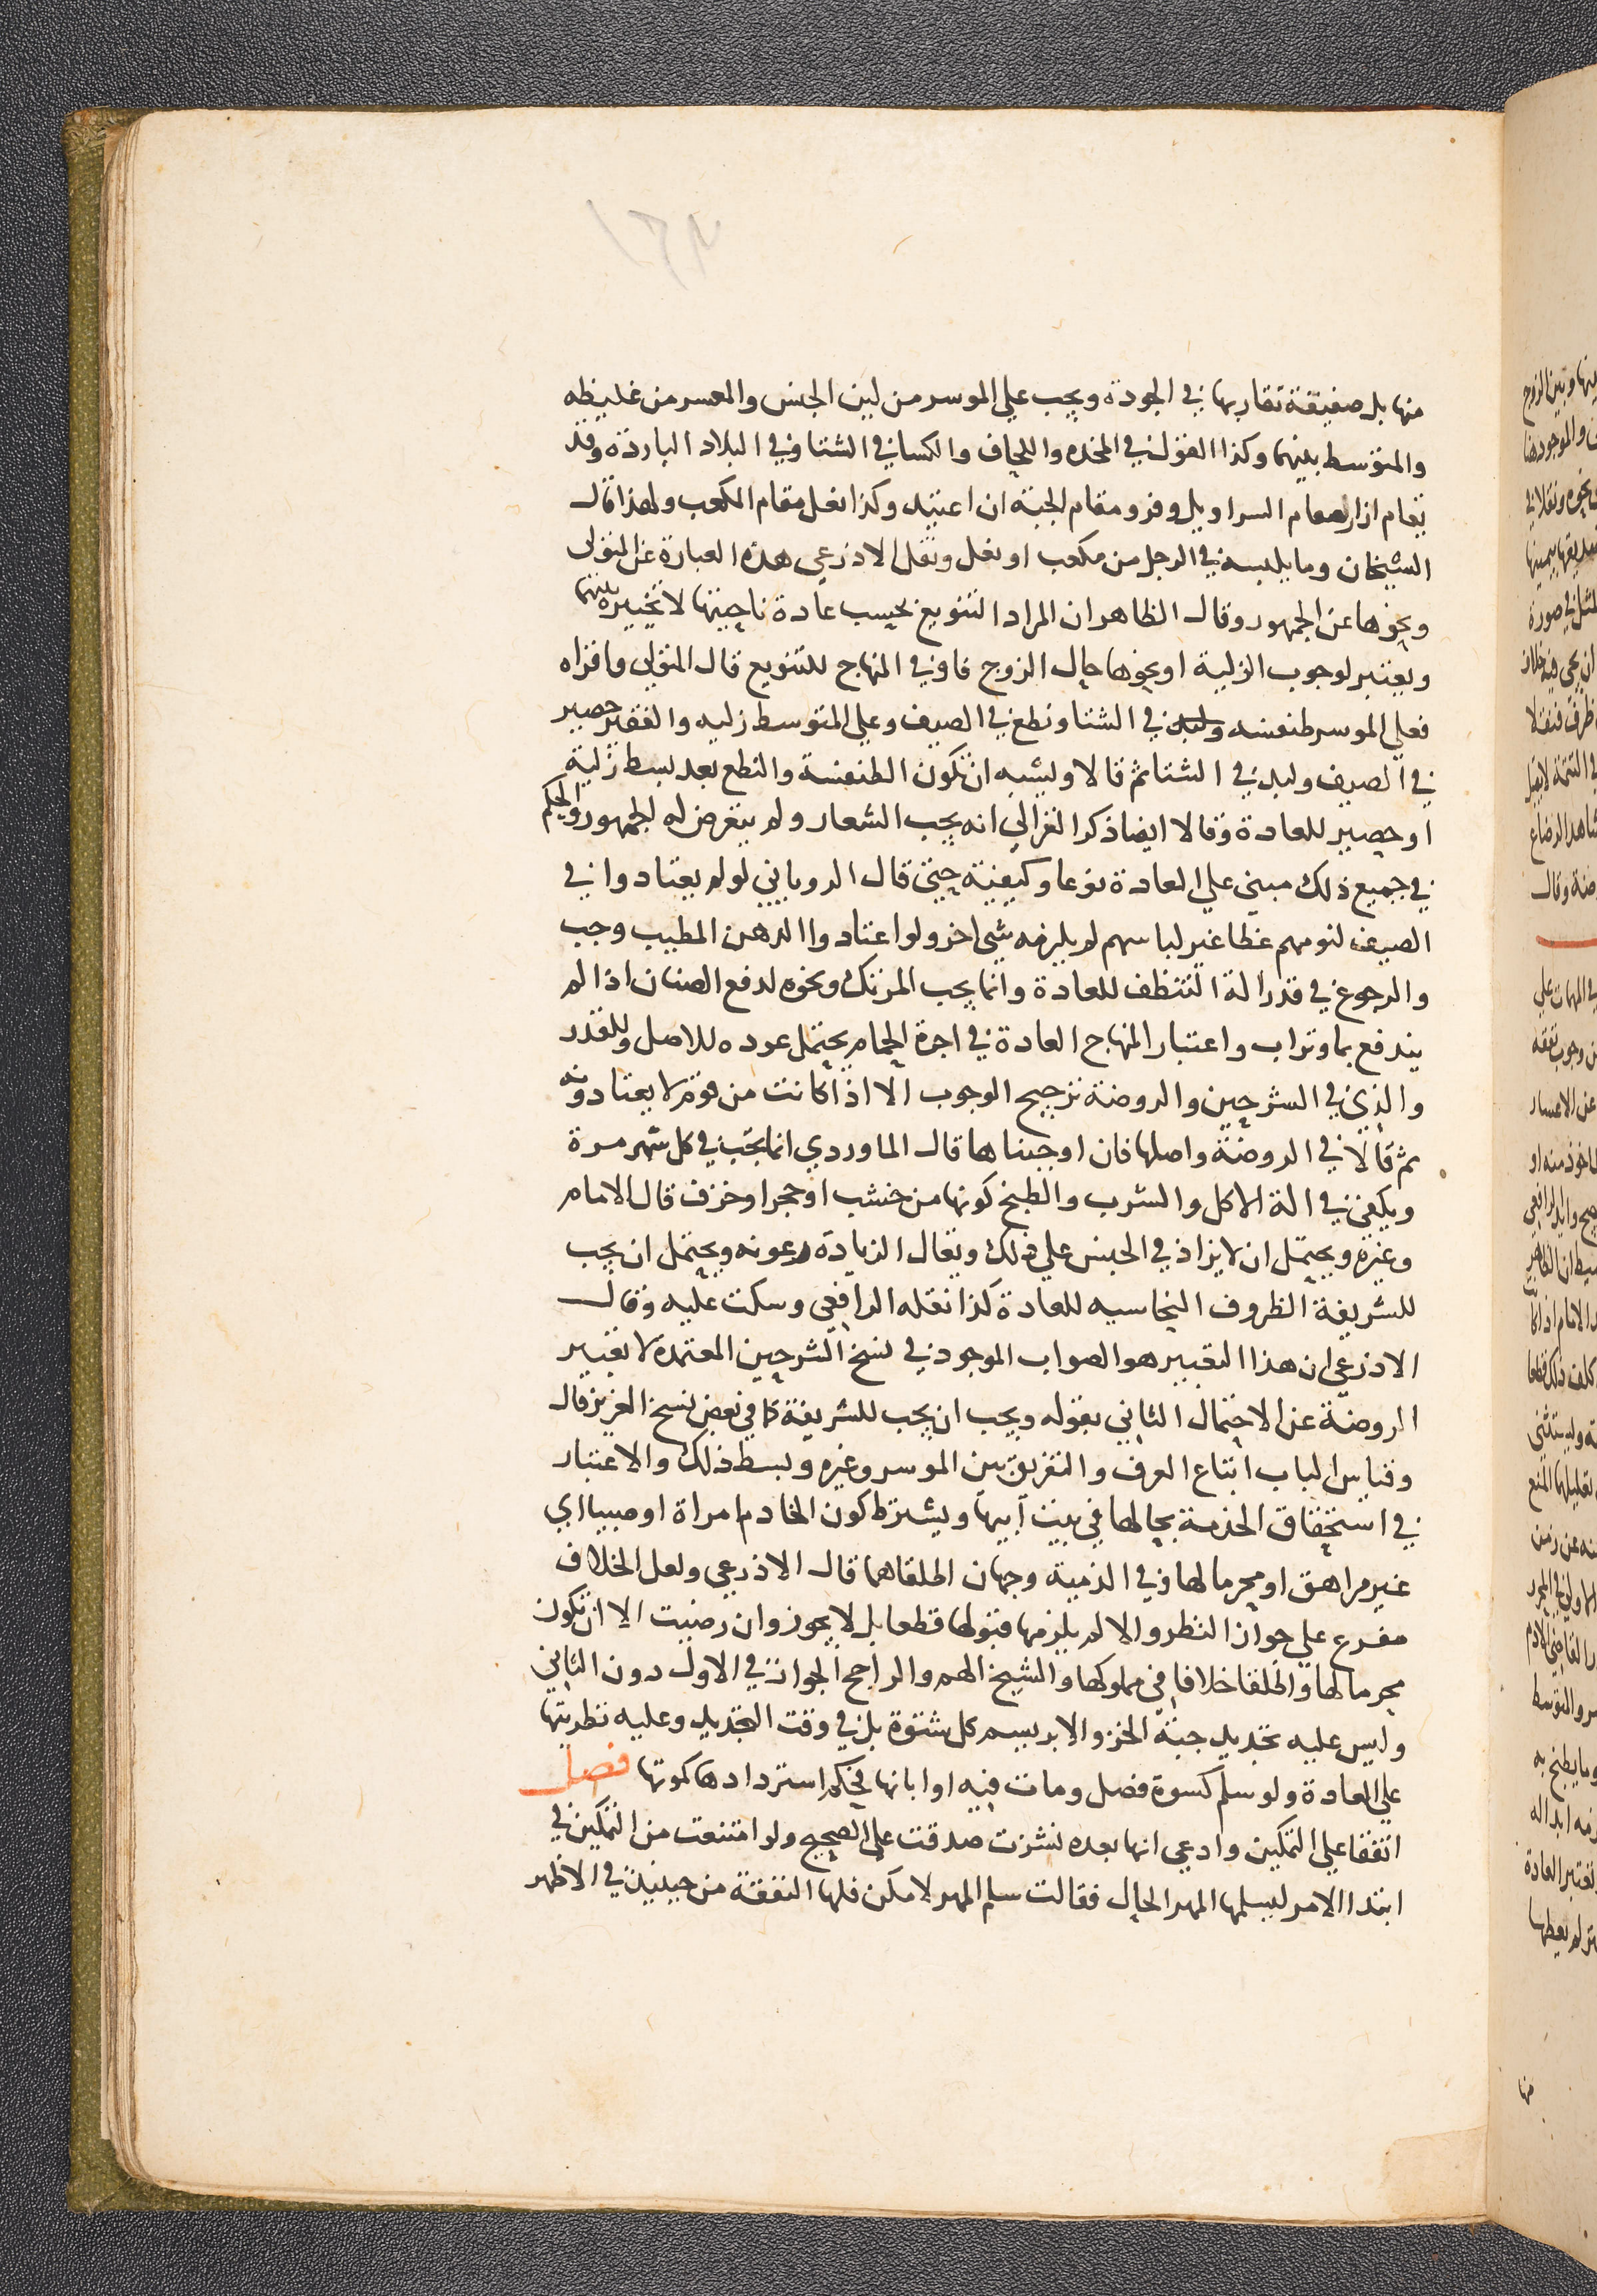 ١٣٢
منها بل صفيقة تقاربها في الجودة ويجب علي الموسر من لين الجنس والمعسر من غليظه
والمتوسط بينهما وكذا القول في المخده واللحاف والكسا في الشتا وفي البلاد الباردة وقد
يقام ازار مقام السراويل وفرو مقام الجبة ان اعتيد وكذا نعل مقام المكعب ولهذا قال
الشيخان وما يلبسه في الرجل من مكعب او نعل ونقل الاذرعي هذه العبارة عن المتولي
ونحوها عن الجمهور وقال الظاهر ان المراد التنويع بحسب عادة ناحيتها لا تخييره بينهما
ويعتبر لوجوب الزلية او نحوها حال الزوج فاو في المنهاج للتنويع قال المتولي واقراه
فعلي الموسر طنفسه في الشتا ونطع في الصيف وعلي المتوسط زليه والفقير حصير
في الصيف ولبد في الشتا ثم قالا ويشبه ان تكون الطنفسة والنطع بعد بسط زلية
او حصير للعادة وقالا ايضا ذكر الغزالي انه يجب الشعار ولم يتعرض له الجمهور والحكم
في جميع ذلك مبني علي العادة نوعا وكيفية حتي قال الروياني لو لم يعتادوا في
الصيف لنومهم غطا غير لباسهم لم يلزمه شي اخر ولو اعتادوا الدهن المطيب وجب
والرجوع في قدر الة التنظف للعادة وانما يجب المرتك ونحوه لدفع الصنان اذا لم
يندفع بما وتراب واعتبار المنهاج العادة في اجرة الحمام يحتمل عوده للاصل وللقدر
والذي في الشرحين والروضة ترجيح الوجوب الا اذا كانت من قوم لا يعتادونه
ثم قالا في الروضة واصلها فان اوجبناها قال الماوردي انما تجب في كل شهر مرة
ويكفي في الة الاكل والشرب والطبخ كونها من خشب او حجر او خزف قال الامام
وغيره ويحتمل ان لا يزاد في الجنس علي ذلك ويقال الزيادة رعونه ويحتمل ان يجب
للشريفة الظروف النحاسيه للعادة كذا نقله الرافعي وسكت عليه وقال
الاذرعي ان هذا التعبير هو الصواب الموجود في نسخ الشرحين المعتمدة لا تعبير
الروضة عن الاحتمال الثاني بقوله ويجب ان يجب للشريفة كما في بعض نسخ العزيز قال
وقياس الباب اتباع العرف والتفريق بين الموسر وغيره وبسط ذلك والاعتبار
في استحقاق الخدمة بحالها في بيت ابيها ويشترط كون الخادم امراة او صبيا اي
غير مراهق او محرما لها وفي الذمية وجهان اطلقاهما قال الاذرعي ولعل الخلاف
مفرع علي جواز النظر والا لم يلزمها قبولها قطعا بل لا يجوز وان رضيت الا ان تكون
محرما لها واطلقا خلافا في مملوكها والشيخ الهم والراجح الجواز في الاول دون الثاني
وليس عليه تجديد جبة الخز والابريسم كل شتوة بل في وقت التجديد وعليه تطريتها
علي العادة ولو سلم كسوة فصل ومات فيه او ابانها فحكم استردادها كموتها فصل
اتفقا علي التمكين وادعي انها بعده نشزت صدقت علي الصحيح ولو امتنعت من التمكين في
ابتدا الامر ليسلمها المهر الحال فقالت سلم المهر لامكن فلها النفقة من حينيذ في الاظهر
منها